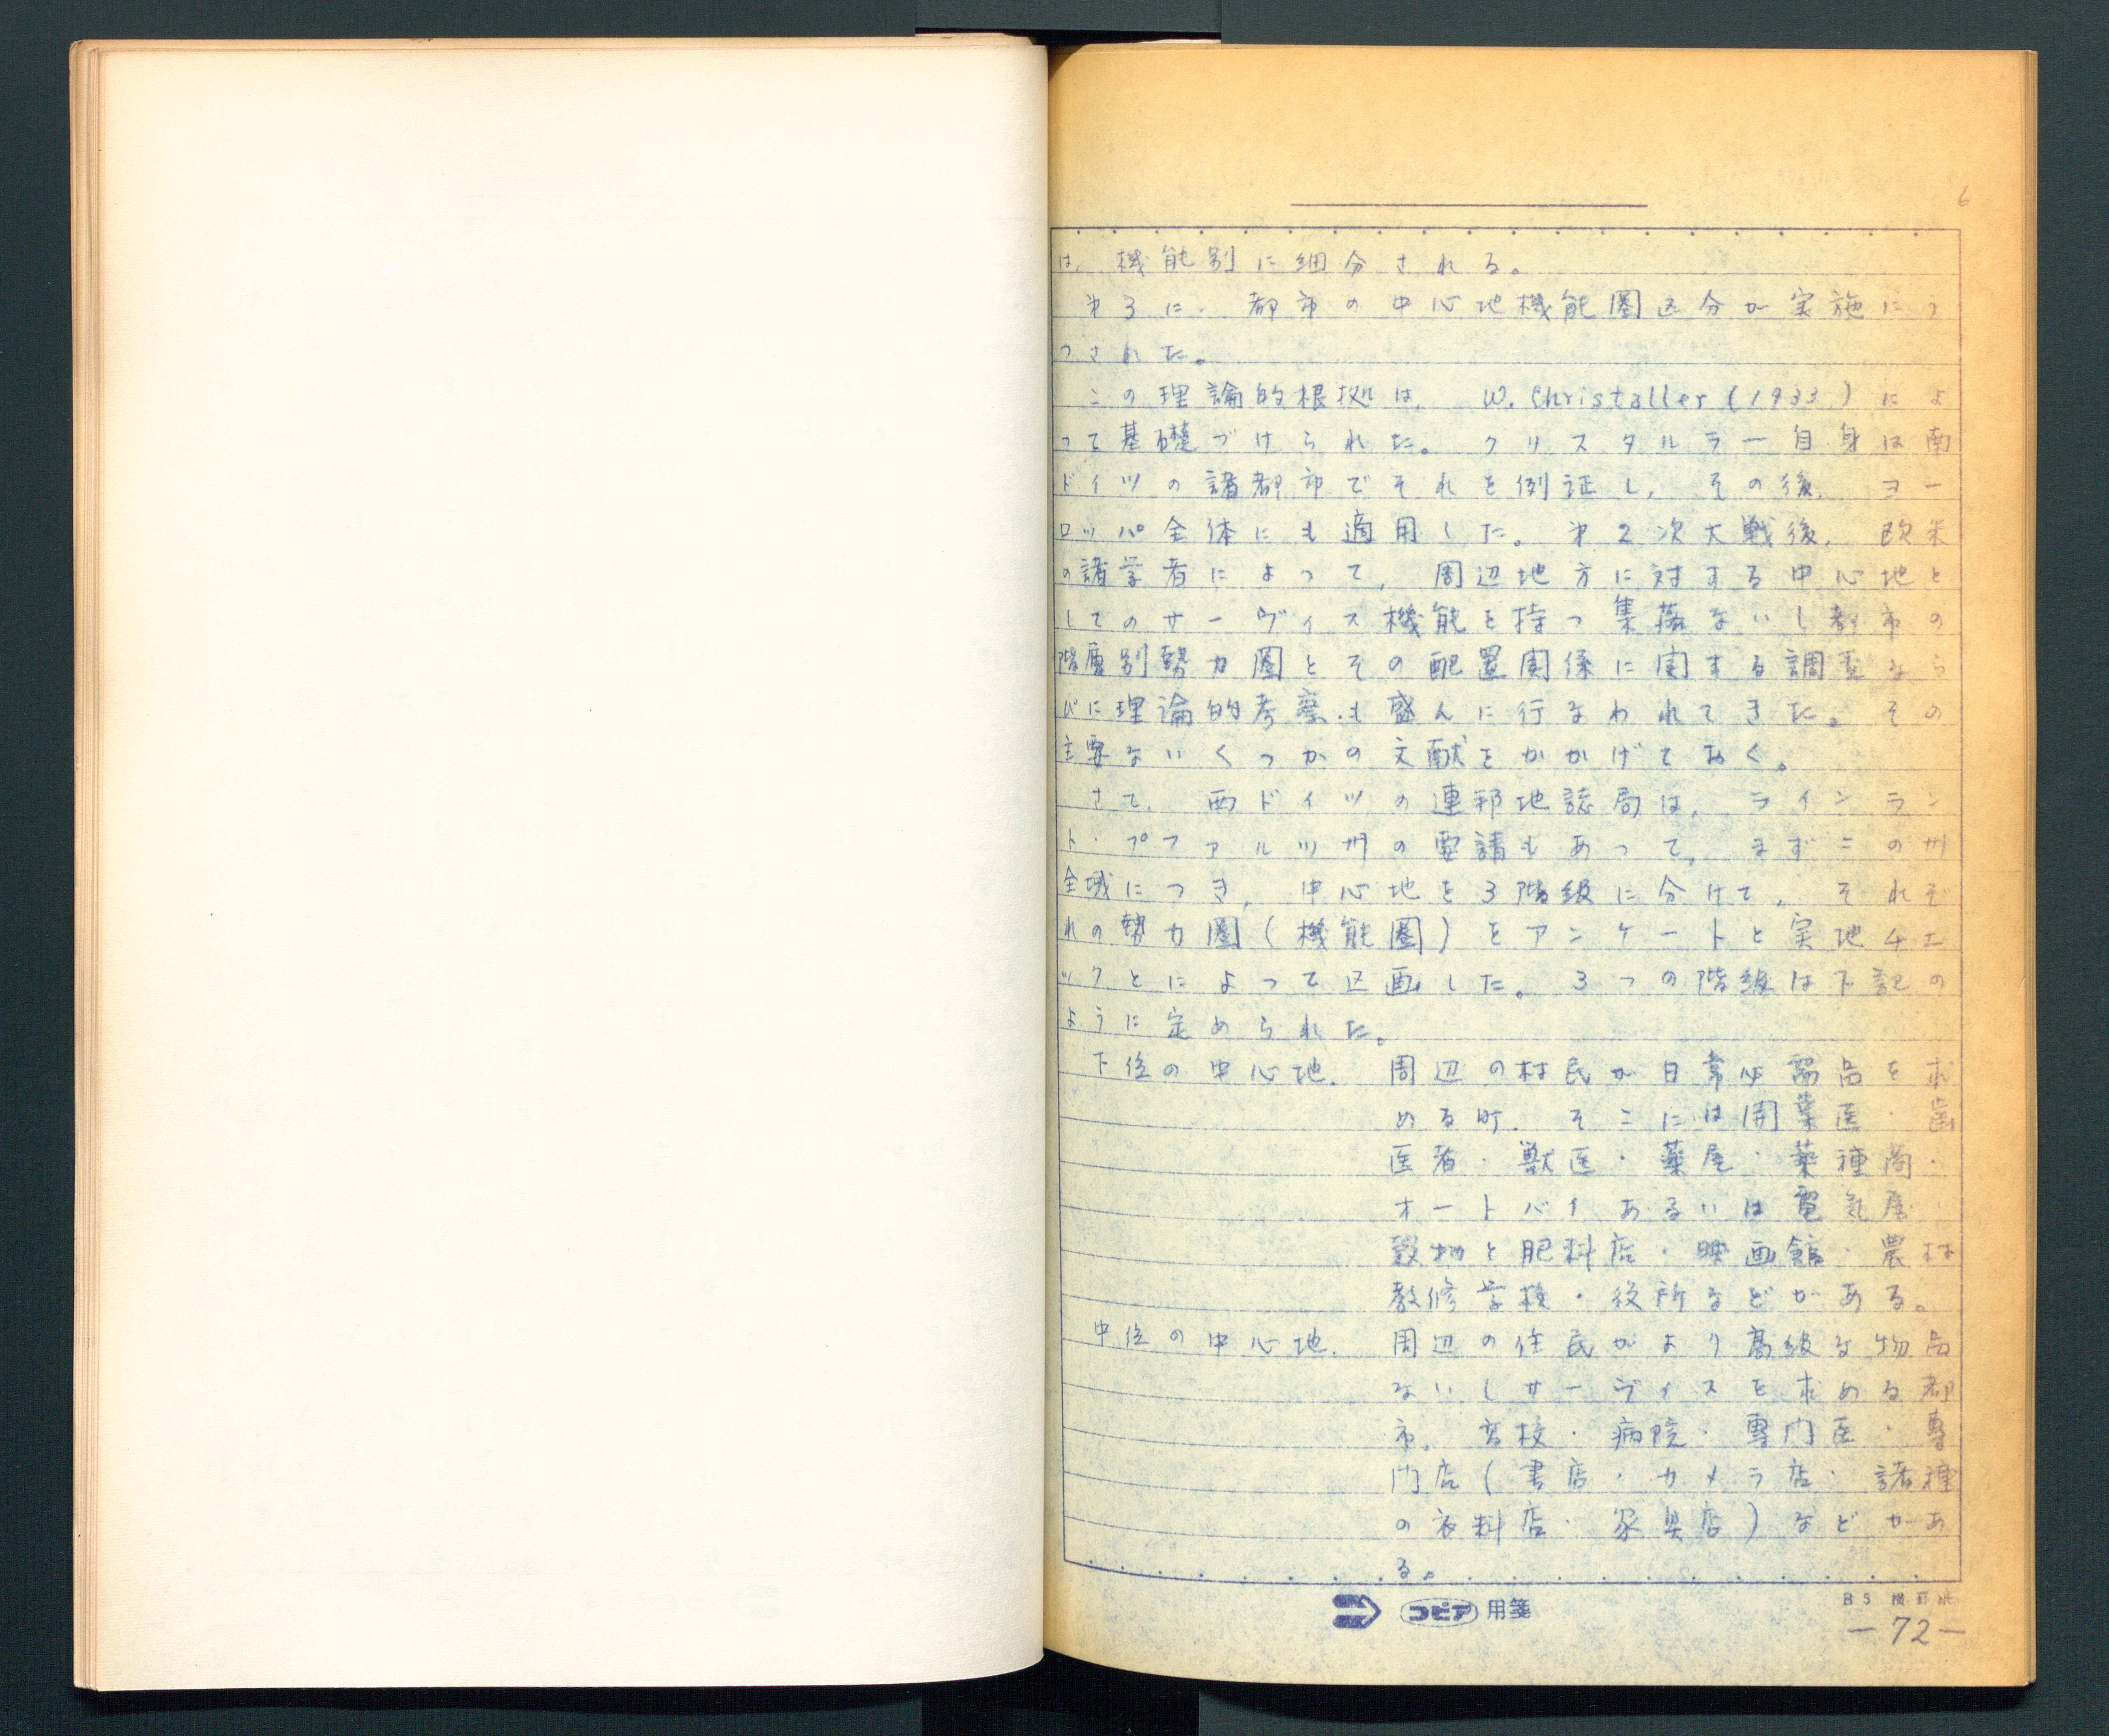 6
は，機能別に細分される。
第3に，都市の中心地機能圏区分が実施にう
つされた。
この理論的根拠は，W. Christaller (1933) によ
って基礎づけられた。クリスタルラー自身は南
ドイツの諸都市でそれを例証し，その後，ヨー
ロッパ全体にも適用した。第2次大戦後，欧米
の諸学者によって，周辺地方に対する中心地と
してのサーヴィス機能を持つ集落ないし都市の
階層別勢力圏とその配置関係に関する調査なら
びに理論的考察も盛んに行なわれてきた。その
主要ないくつかの文献をかかげておく。
さて，西ドイツの連邦地誌局は，ラインラン
ト・プファルツ州の要請もあって，まずこの州
全域につき，中心地を3階級に分けて，それぞ
れの勢力圏（機能圏）をアンケートと実地チェ
ックとによって区画した。3つの階級は下記の
ように定められた。
下位の中心地．周辺の村民が日常必需品を求
める町．そこには開業医・歯
医者・獣医・薬屋・薬種商・
オートバイあるいは電気屋・
穀物と肥料店・映画館・農村
教修学校・役所などがある。
中位の中心地．周辺の住民がより高級な物品
ないしサーヴィスを求める都
市．高校・病院・専門医・専
門店（書店・カメラ店・諸種
の衣料店・家具店）などがあ
る。
コピア 用箋
B5 横罫
―72―